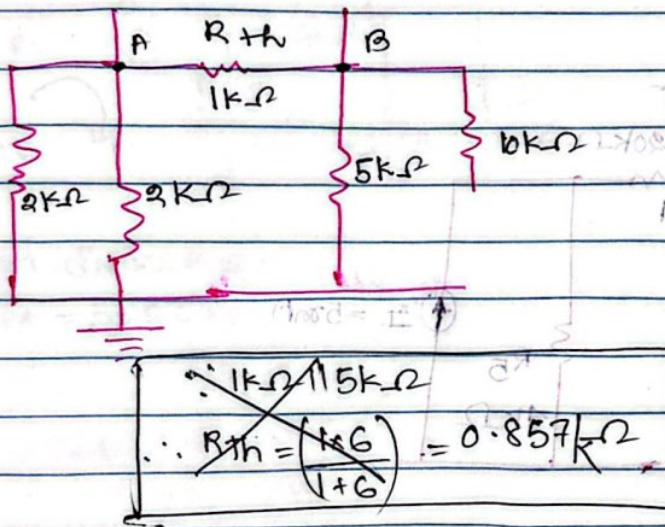 A Rth B
1kΩ
2kΩ 2kΩ 5kΩ 10kΩ
∵ 1kΩ || 5kΩ
∴ Rth = (1*6 / 1+6) = 0.857kΩ